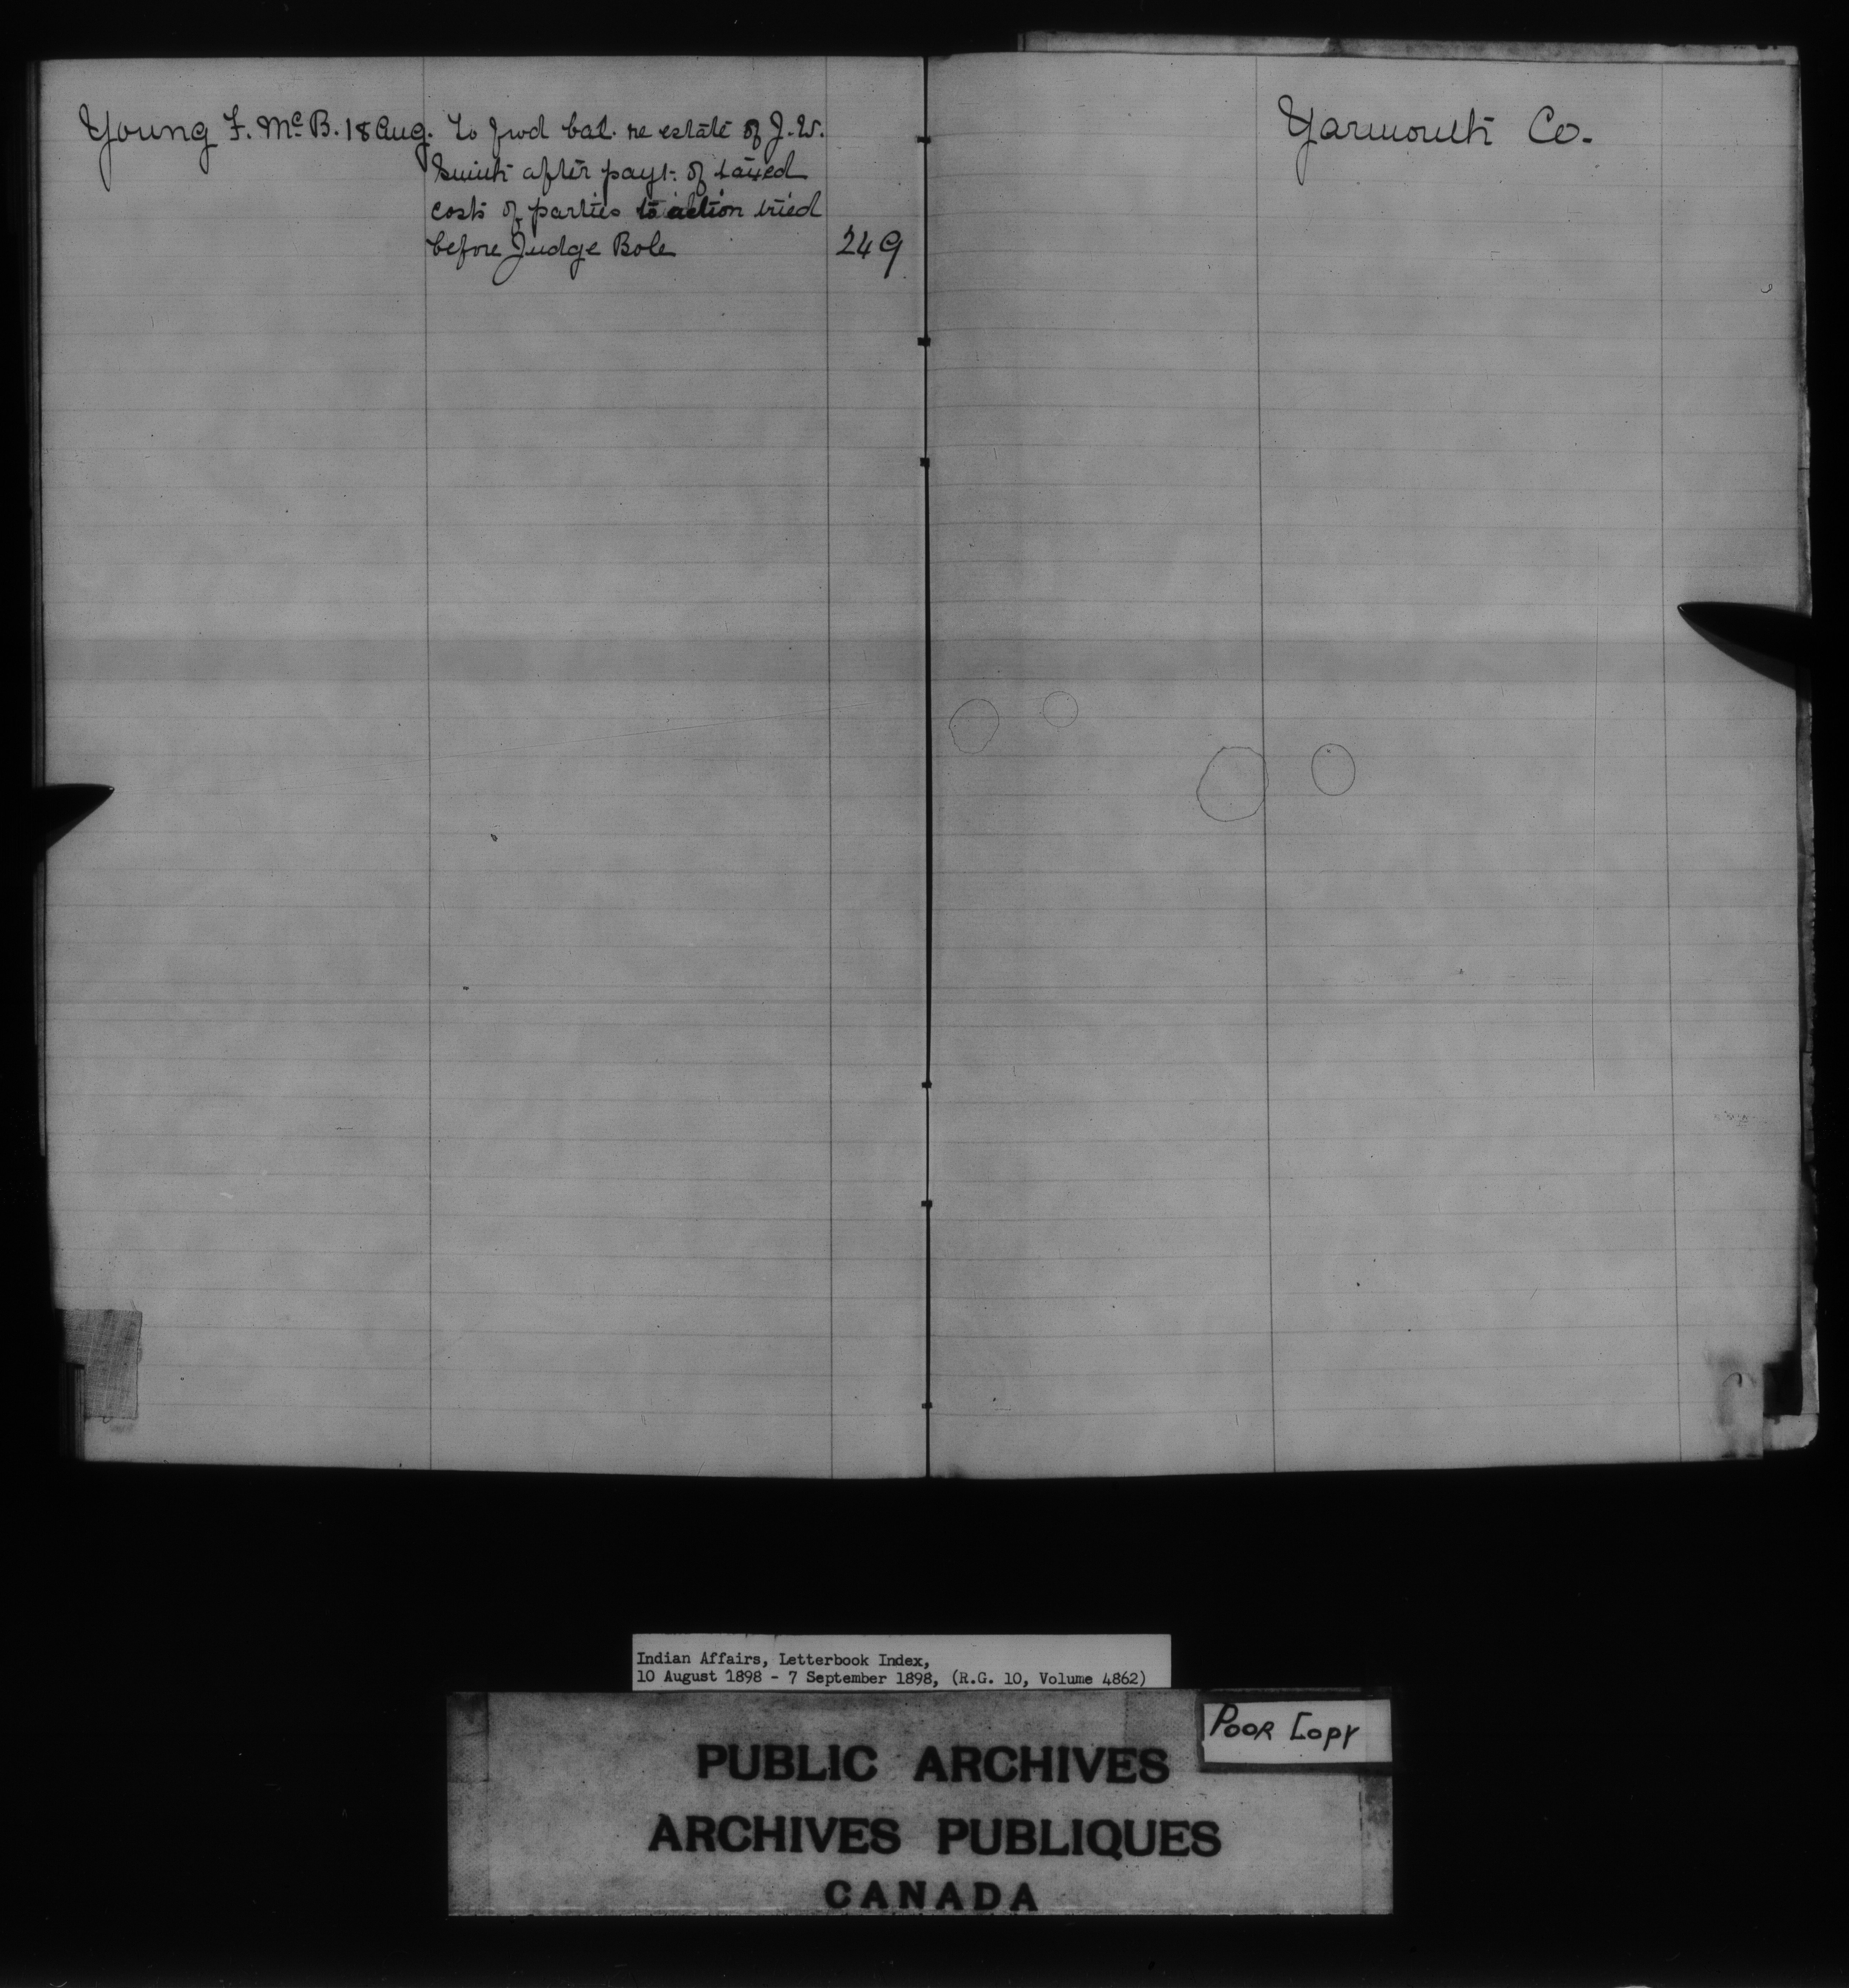 Young F. McB. 18 Aug. To fwd bal. re estate of J.W.
Smith after payt. of taxed
costs of parties to action tried
before Judge Bole 249
Yarmouth Co.
Indian Affairs, Letterbook Index,
10 August 1898 - 7 September 1898, (R.G. 10, Volume 4862)
POOR COPY
PUBLIC ARCHIVES
ARCHIVES PUBLIQUES
CANADA